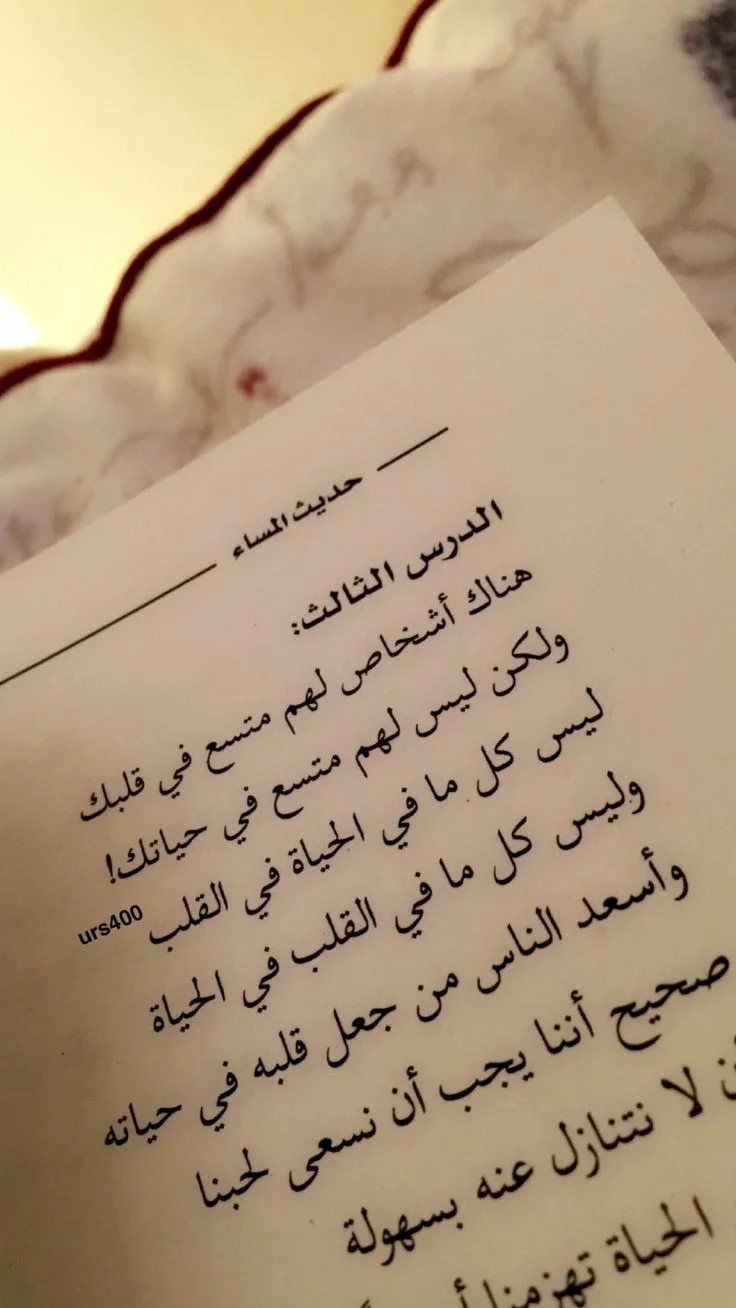 حديث المساء
الدرس الثالث:
هناك أشخاص لهم متسع في قلبك
ولكن ليس لهم متسع في حياتك!
ليس كل ما في الحياة في القلب
urs400
وليس كل ما في القلب في الحياة
وأسعد الناس من جعل قلبه في حياته
صحيح أننا يجب أن نسعى لحبنا
لا نتنازل عنه بسهولة
الحياة تهزمنا